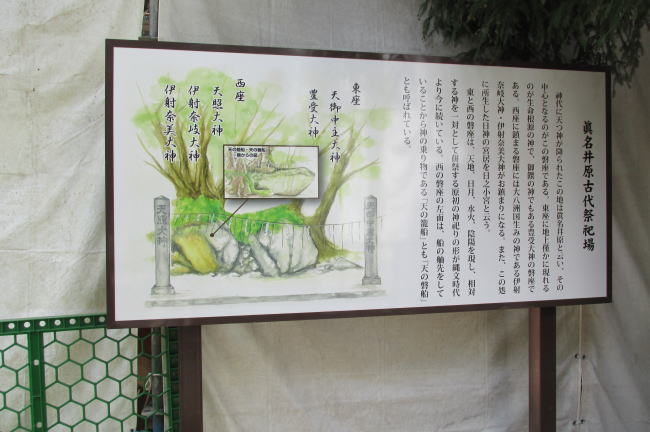 眞名井原古代祭祀場
神代に天つ神が降られたこの地は眞名井原と云い、その
中心となるのがこの磐座である。東座に地上僅かに現れる
のが生命根源の神で、御饌の神でもある豊受大神の磐座で
ある。西座に鎮まる磐座には大八洲国生みの神である伊射
奈岐大神・伊射奈美大神がお鎮まりになる。また、この処
に所生した日神の宮居を日之小宮と云う。
東と西の磐座は、天地、日月、水火、陰陽を現し、相対
する神を一対として併祭する原初の神祀りの形が縄文時代
より今に続いている。西の磐座の左面は、船の舳先をして
いることから神の乗り物である「天の籠船」とも「天の磐船」
とも呼ばれている。
東座
天御中主大神
豊受大神
西座
天照大神
伊射奈岐大神
伊射奈美大神
天の籠船・天の磐船
天照大神